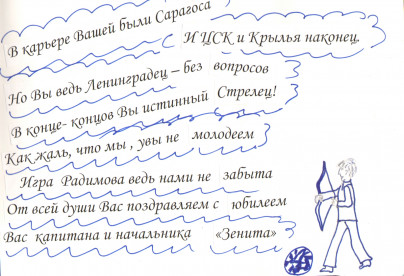 В карьере Вашей были Сарагоса
И ЦСК и Крылья наконец.
Но Вы ведь Ленинградец – без вопросов
В конце- концов Вы истинный Стрелец!
Как жаль, что мы , увы не молодеем
Игра Радимова ведь нами не забыта
От всей души Вас поздравляем с юбилеем
Вас капитана и начальника «Зенита»